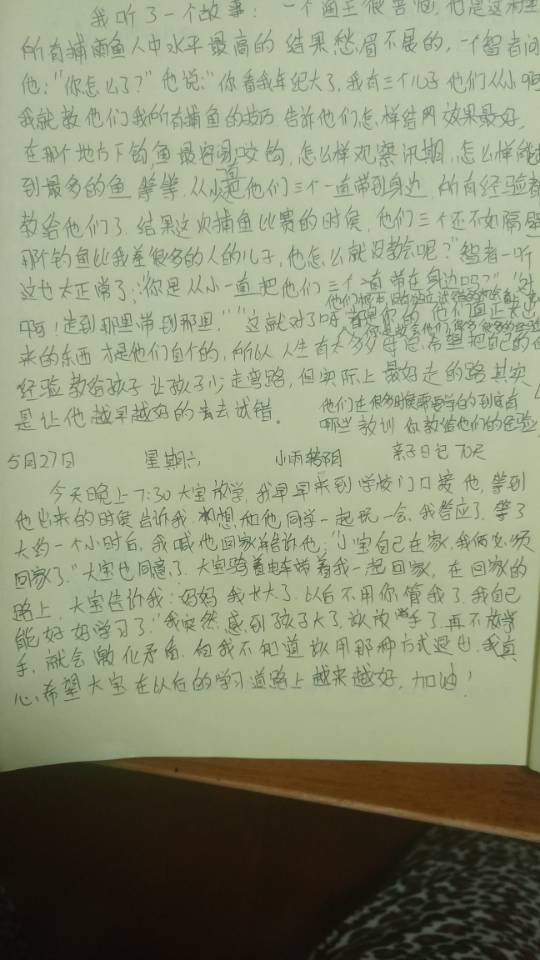 我听了一个故事：一个渔王很苦恼，他是这村里
所有捕鱼人中水平最高的 结果愁眉不展的，一个智者问
他："你怎么了？"他说："你看我年纪大了，我有三个儿子 他们从小啊
我就教他们我所有捕鱼的技巧 告诉他们怎样结网效果最好，
在那个地方下钓鱼最容易咬钩，怎么样观察汛期，怎么样能捕
到最多的鱼 等等，从小把他们三个一直带到身边，所有经验都
教给他们了，结果这次捕鱼比赛的时候，他们三个还不如隔壁
那个钓鱼比我差很多的人的儿子，他怎么就没教会呢？"智者一听
这也太正常了："你是从小一直把他们三个一直带在身边吗？""对
啊！走到那里带到那里。""这就对了呀 他们真正
来的东西 才是他们自个的，所以 人生有太多 希望把自己的
经验教给孩子 让孩子少走弯路，但实际上最好走的路其实
是让他越早越好的去去试错。
他们在很多时候需要学的到底有
哪些教训 你教给他们的经验
5月27日 星期六 小雨转阴 亲子日记 70天
今天晚上7:30大宝放学，我早早来到学校门口接他，等到
他出来的时候告诉我 想和他同学一起玩一会，我答应了，等了
大约一个小时后，我喊他回家并告诉他，"小宝自己在家，我们必须
回家了。"大宝也同意了，大宝骑着电车带着我一起回家，在回家的
路上，大宝告诉我：妈妈 我长大了，以后不用你管我了，我自己
能好好学习了"我突然感到孩子大了，该放手了，再不放
手，就会激化矛盾，但我不知道该用那种方式退出，我真
心希望大宝在以后的学习道路上越来越好，加油！